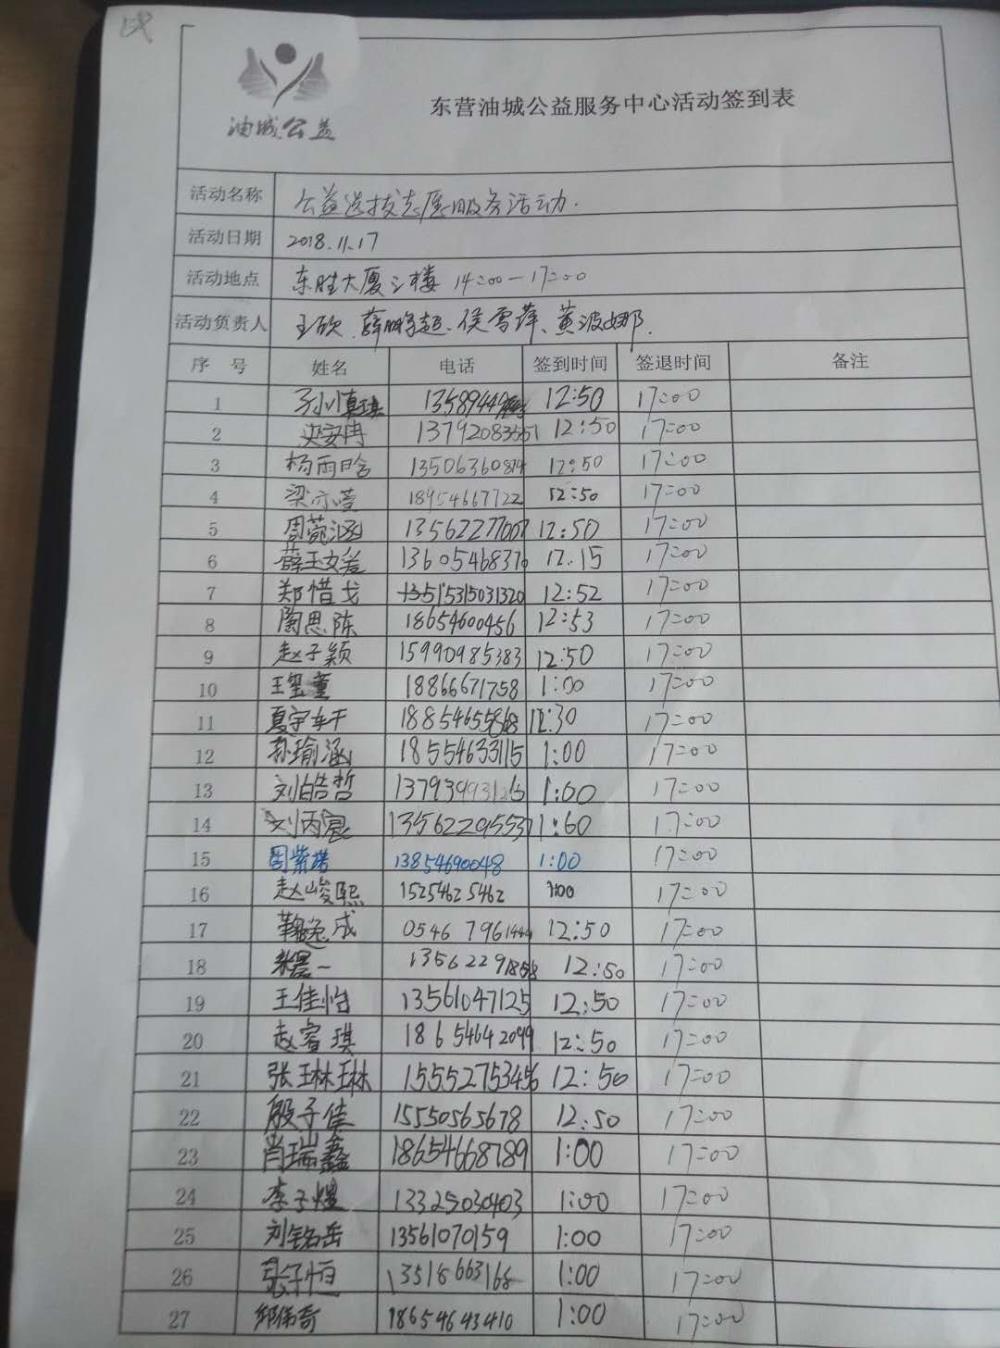 油城公益
东营油城公益服务中心活动签到表
活动名称 公益选拔志愿服务活动.
活动日期 2018.11.17
活动地点 东胜大厦三楼 14:00—17:00
活动负责人 王欣、薛鹏超、侯雪萍、黄波娜.
序号 姓名 电话 签到时间 签退时间 备注
1 12:50 17:00
2 12:50 17:00
3 杨雨晗 12:50 17:00
4 梁亦莹 18954667722 12:50 17:00
5 周菀涵 13562277007 12:50 17:00
6 13605468370 12.15 17:00
7 郑惜戈 15315031320 12:52 17:00
8 陶思陈 18654600456 12:53 17:00
9 赵子颖 15990985383 12:50 17:00
10 王玺童 18866671758 1:00 17:00
11 17:00
12 孙瑜涵 18554633115 1:00 17:00
13 刘皓哲 1:00 17:00
14 刘丙晨 13562209553 1:60 17:00
15 13854690048 1:00 17:00
16 赵峻熙 15254625462 1:00 17:00
17 成 0546 12:50 17:00
18 12:50 17:00
19 王佳怡 13561047125 12:50 17:00
20 赵睿琪 18654642099 12:50 17:00
21 张琳琳 15552753456 12:50 17:00
22 殷子佳 15550565678 12:50 17:00
23 肖瑞鑫 18654668789 1:00 17:00
24 李子煜 13325030403 1:00 17:00
25 刘铭岳 13561070159 1:00 17:00
26 张子恒 13518663168 1:00 17:00
27 18654643410 1:00 17:00